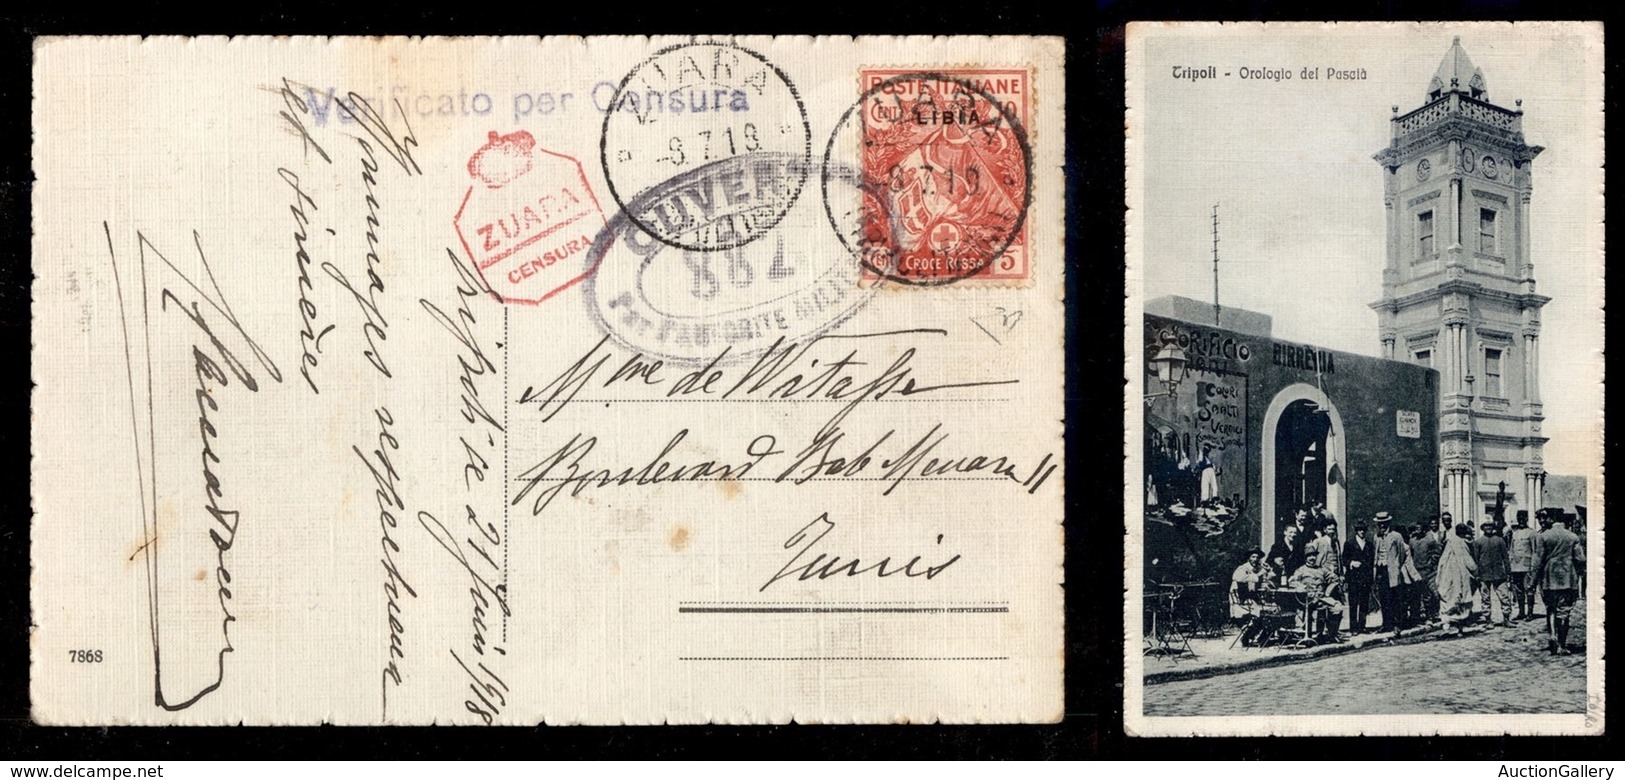 Verificato per Censura
ZUARA
-8.7.18
ZUARA
CENSURA
OUVERT
882
Par l'AUTORITÉ MILITAIRE
POSTE ITALIANE
CENT 10
LIBIA
CENT CROCE ROSSA 5
ZUARA
-8.7.18
(TRIPOLITANIA)
Hommages respectueux
et sincères
Tripoli le 21 Juin 1918
Mme de Witasse
Boulevard Bab Menara 11
Tunis
7868
Tripoli - Orologio del Pascià
COLORIFICIO
BIRRERIA
COLORI
SMALTI
VERNICI
AuctionGallery